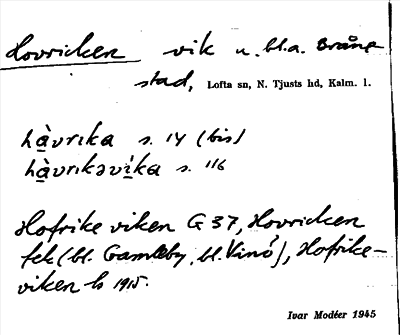 Hovricken vik u. bl.a. Bråne
stad, Lofta sn, N. Tjusts hd, Kalm. l.
hàvrıka s. 14 (bis)
hàvrıkəvi̇́ka s. 116
Hofrike viken G 37, Hovricken
fek (bl. Gamleby, bl. Vinö), Hofrike-
viken h 1915.
Ivar Modéer 1945